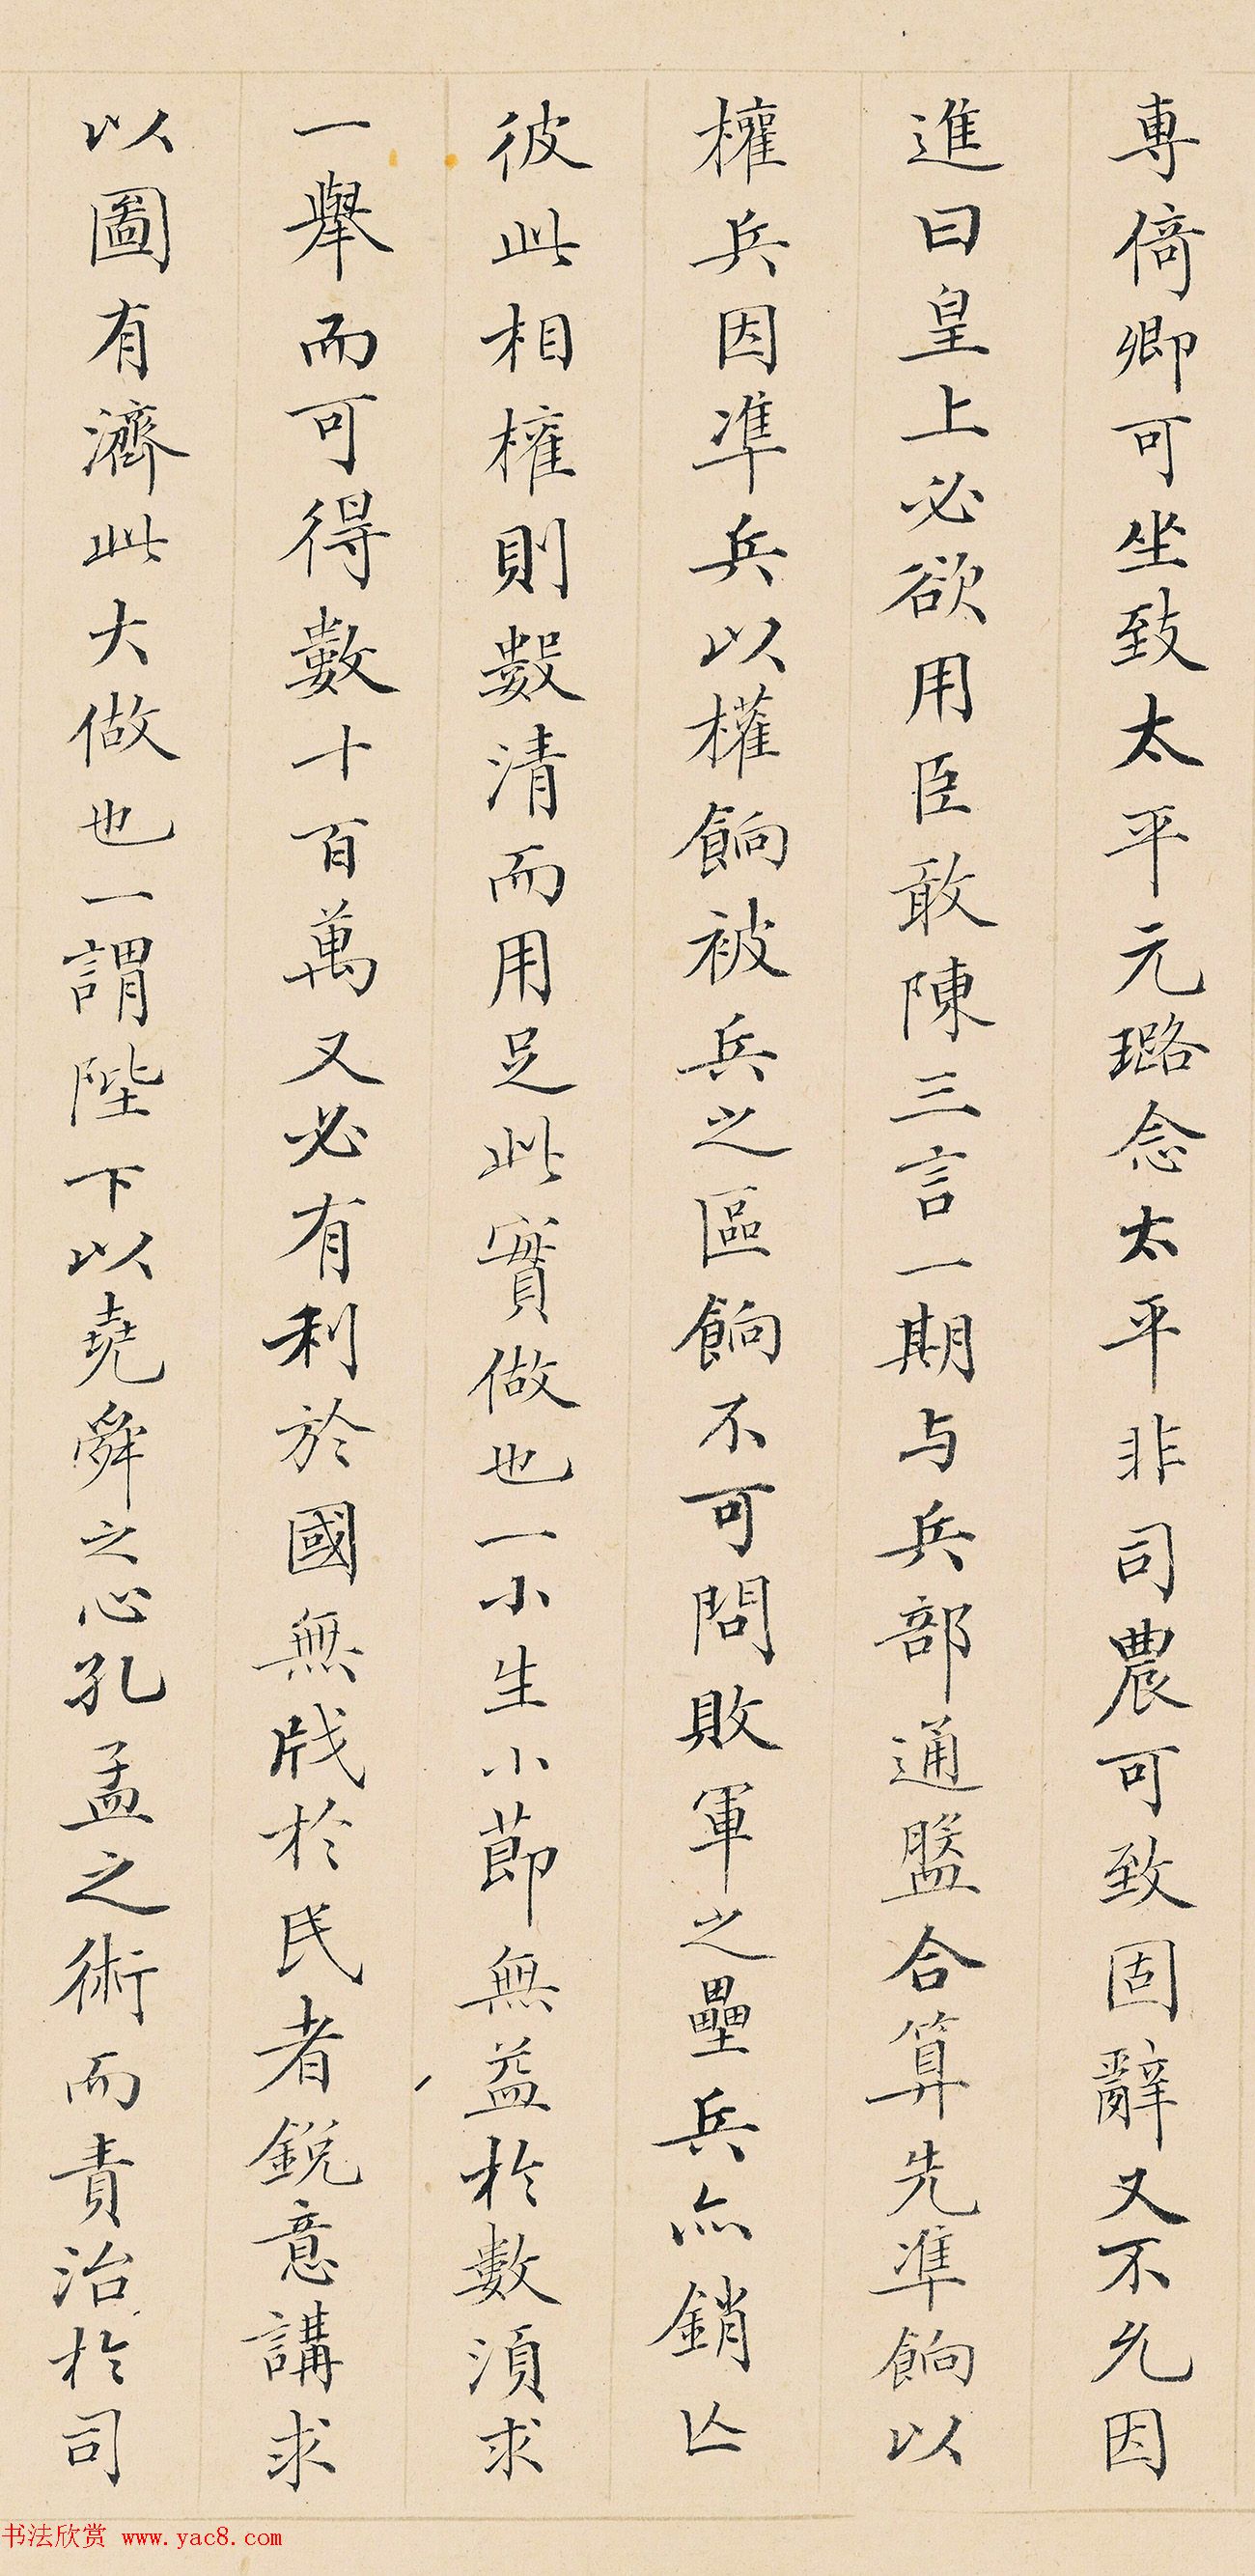 專倚卿可坐致太平元璐念太平非司農可致固辭又不允因
進曰皇上必欲用臣敢陳三言一期与兵部通盤合算先準餉以
權兵因準兵以權餉被兵之區餉不可問敗軍之壘兵亦銷亡
彼此相權則數清而用足此實做也一小生小節無益於數須求
一舉而可得數十百萬又必有利於國無戕於民者銳意講求
以圖有濟此大做也一謂陛下以堯舜之心孔孟之術而責治於司
书法欣赏 www.yac8.com